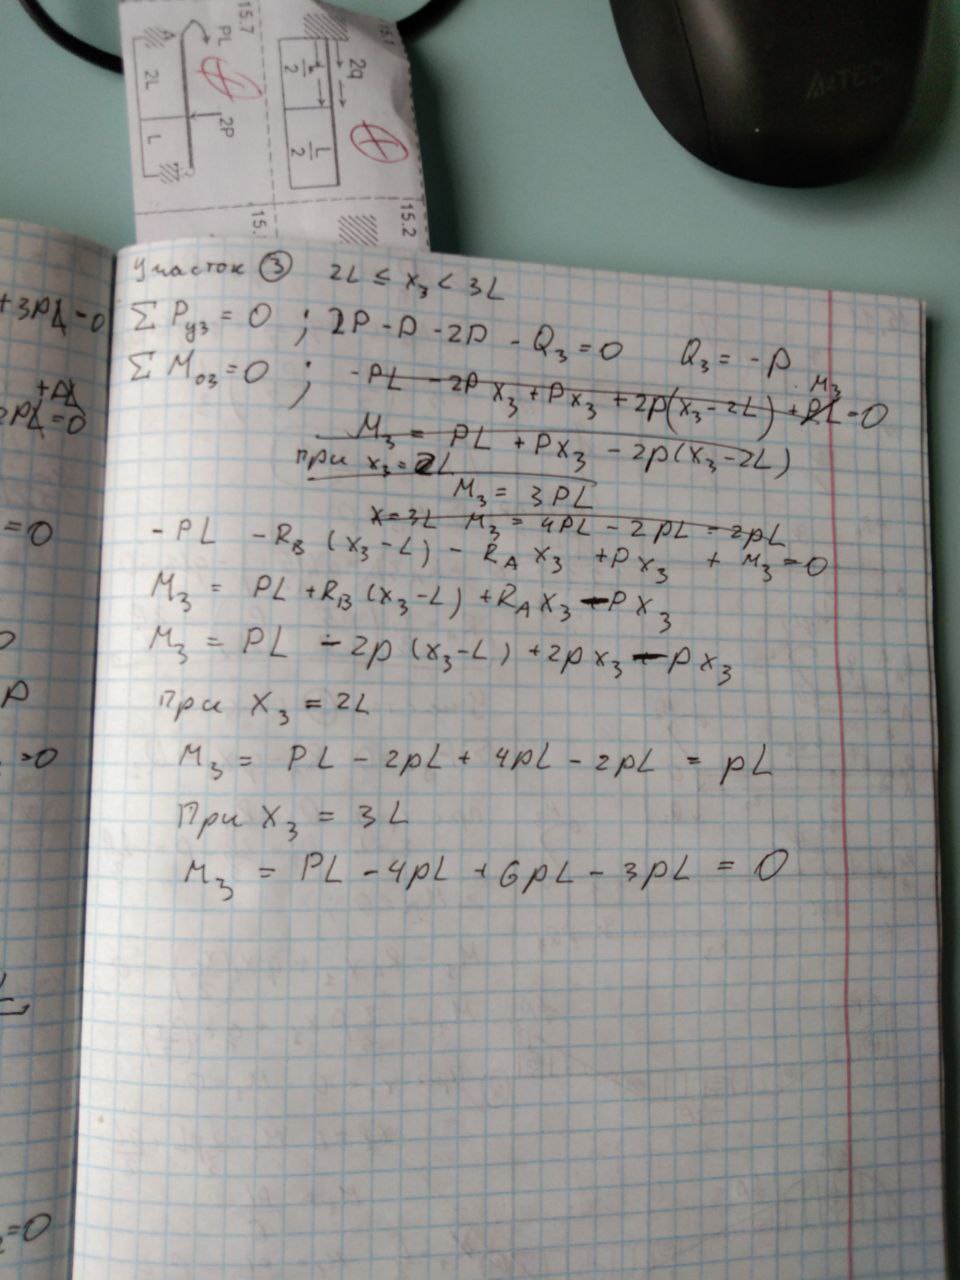 15.7
PL
A
2L
L
2P
15.1
2q
L
2
L
2
15.2
+3PL=0
+PL
2PL=0
=0
P
=0
=0
Участок ③ 2L ≤ x₃ < 3L
Σ Py₃ = 0 ; 2P - P - 2P - Q₃ = 0 Q₃ = -P
Σ Mo₃ = 0 ; -PL - 2P x₃ + P x₃ + 2P(x₃ - 2L) + M₃ = 0
M₃ = PL + Px₃ - 2P(x₃ - 2L)
при x₃ = 2L
M₃ = 3PL
x = 3L M₃ = 4PL - 2PL = 2PL
-PL - RB (x₃ - L) - RA x₃ + P x₃ + M₃ = 0
M₃ = PL + RB (x₃ - L) + RA x₃ - P x₃
M₃ = PL - 2P (x₃ - L) + 2P x₃ - P x₃
При x₃ = 2L
M₃ = PL - 2PL + 4PL - 2PL = PL
При x₃ = 3L
M₃ = PL - 4PL + 6PL - 3PL = 0